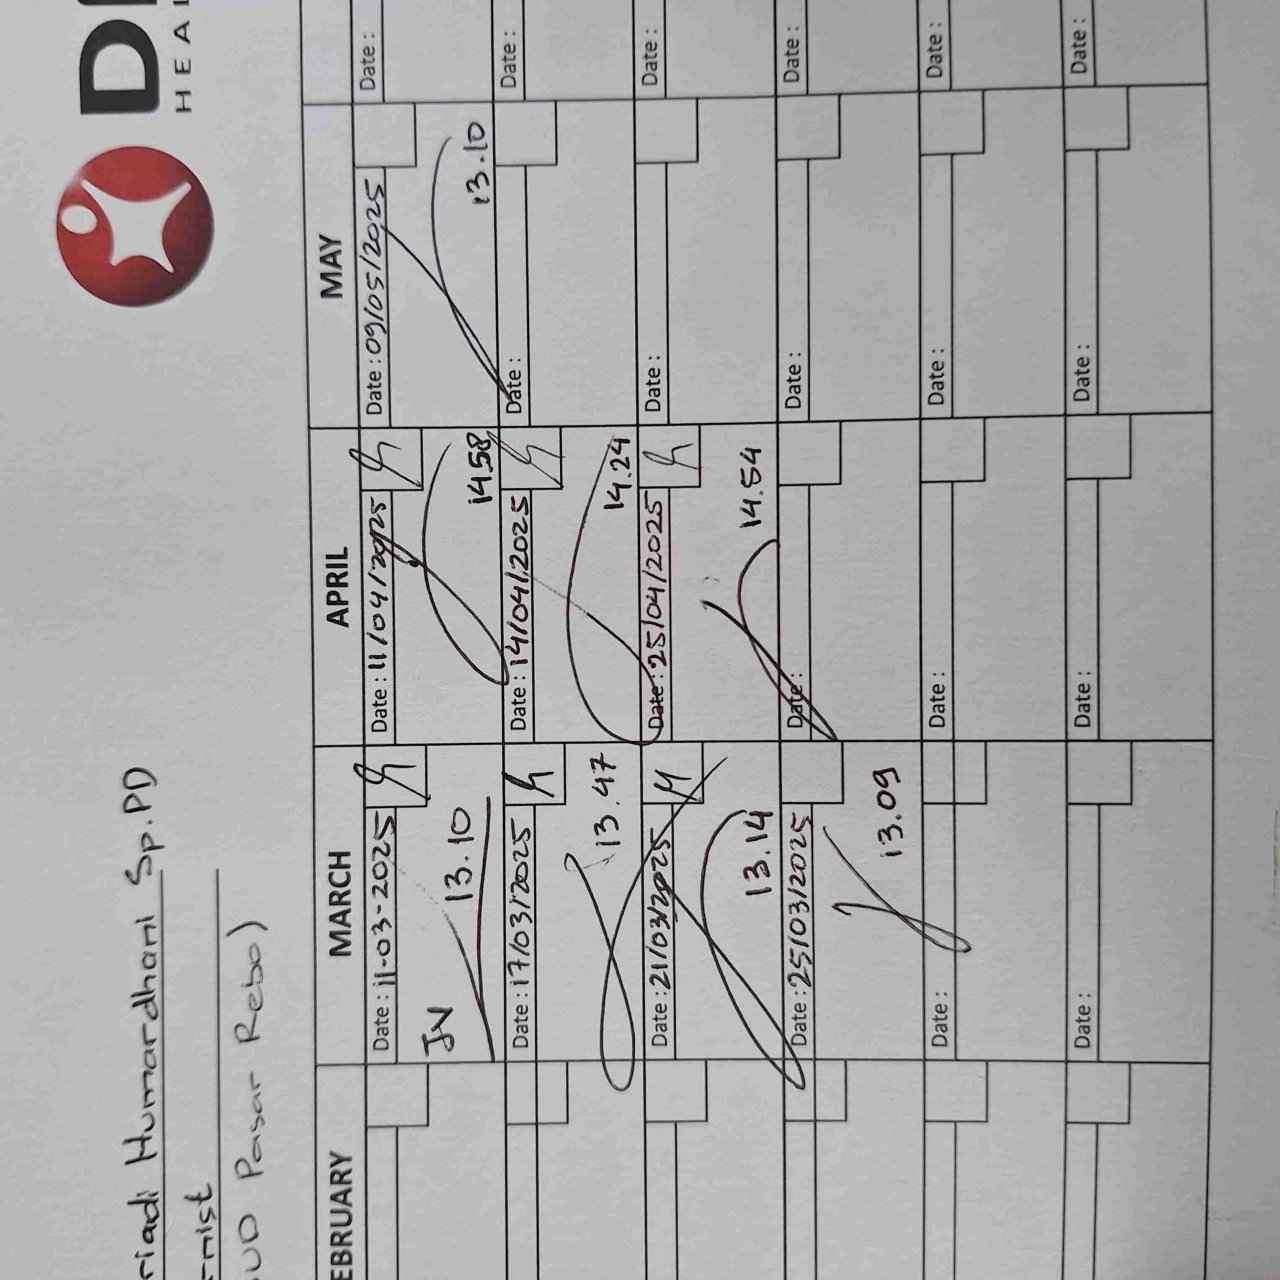 riadi Humardhani Sp.PD
rnist
UD Pasar Rebo)
D
HEA
EBRUARY
MARCH
APRIL
MAY
Date : 11-03-2025
JV 13.10
Date : 11/04/2025
14.58
Date : 09/05/2025
13.10
Date :
Date : 17/03/2025
13.47
Date : 14/04/2025
14.24
Date :
Date :
Date : 21/03/2025
13.14
Date : 25/04/2025
14.54
Date :
Date :
Date : 25/03/2025
13.09
Date :
Date :
Date :
Date :
Date :
Date :
Date :
Date :
Date :
Date :
Date :